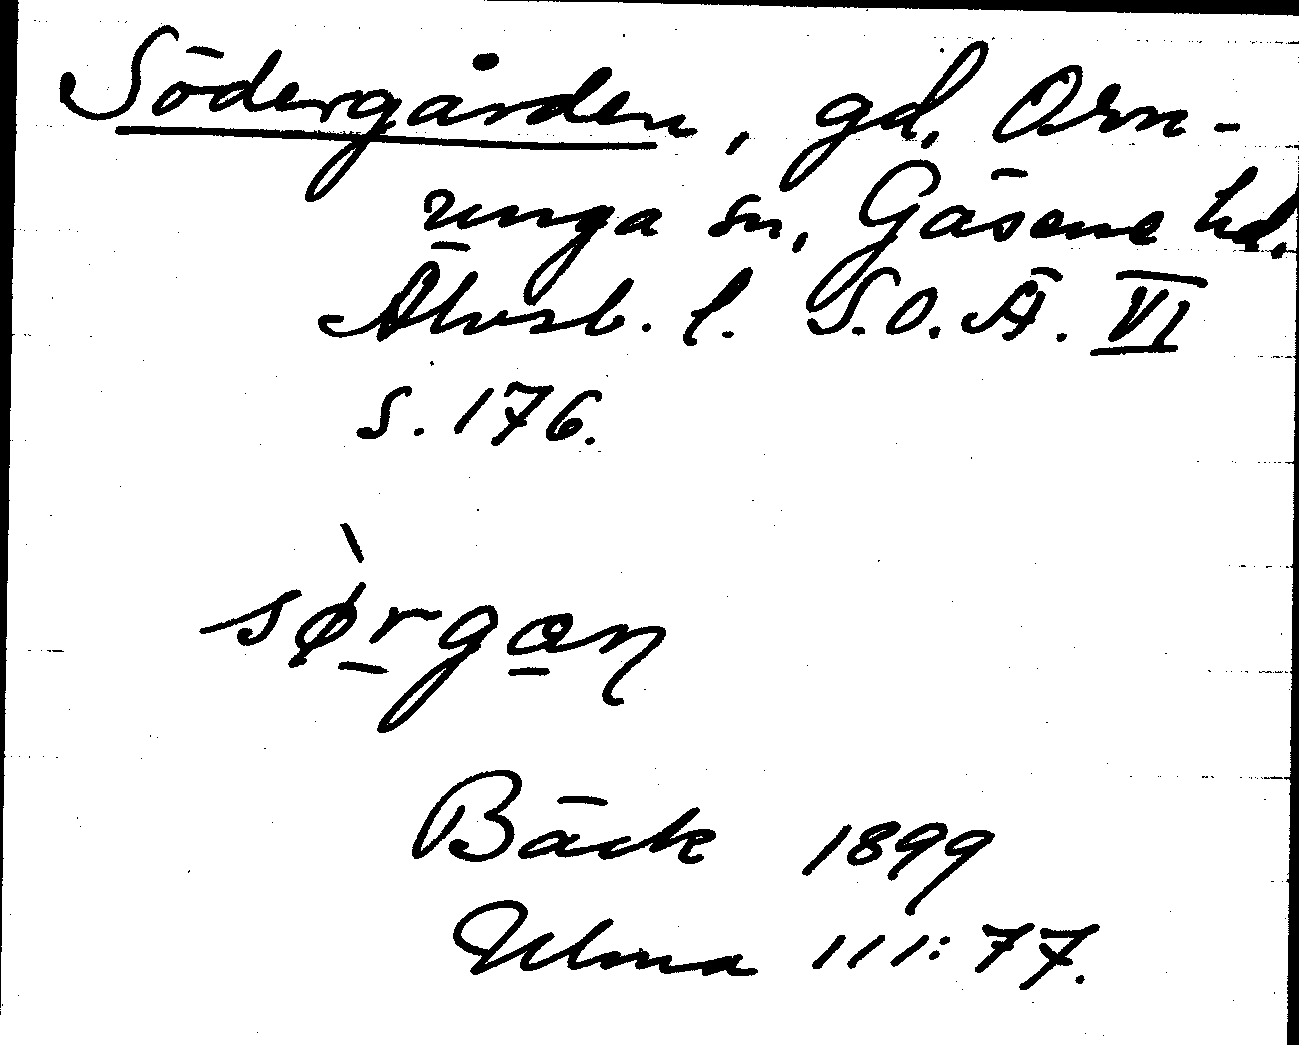 Södergården, gd, Orn-
unga sn, Gäsene hd.
Älvsb. l. S.O.Ä. VI
s. 176.
sø̀rgan
Bäck 1899
Ulma 111:77.